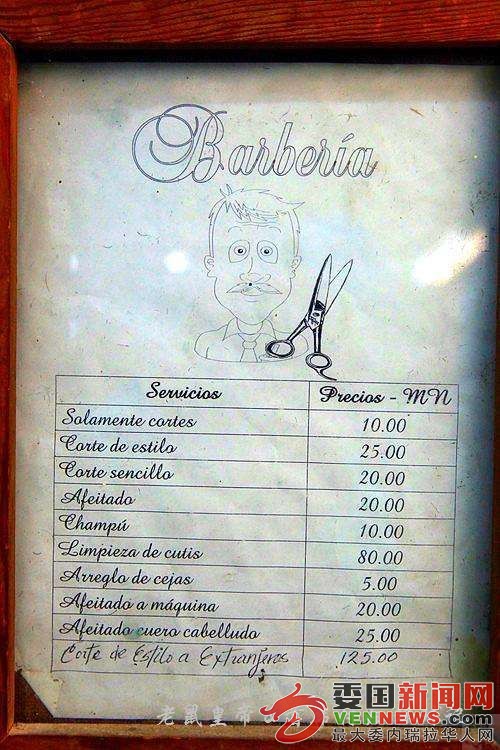 Barbería
Servicios Precios - MN
Solamente cortes 10.00
Corte de estilo 25.00
Corte sencillo 20.00
Afeitado 20.00
Champú 10.00
Limpieza de cutis 80.00
Arreglo de cejas 5.00
Afeitado a máquina 20.00
Afeitado cuero cabelludo 25.00
Corte de Estilo a Extranjeros 125.00
老鼠皇帝
委国新闻网
VENNEWS.com
最大委内瑞拉华人网